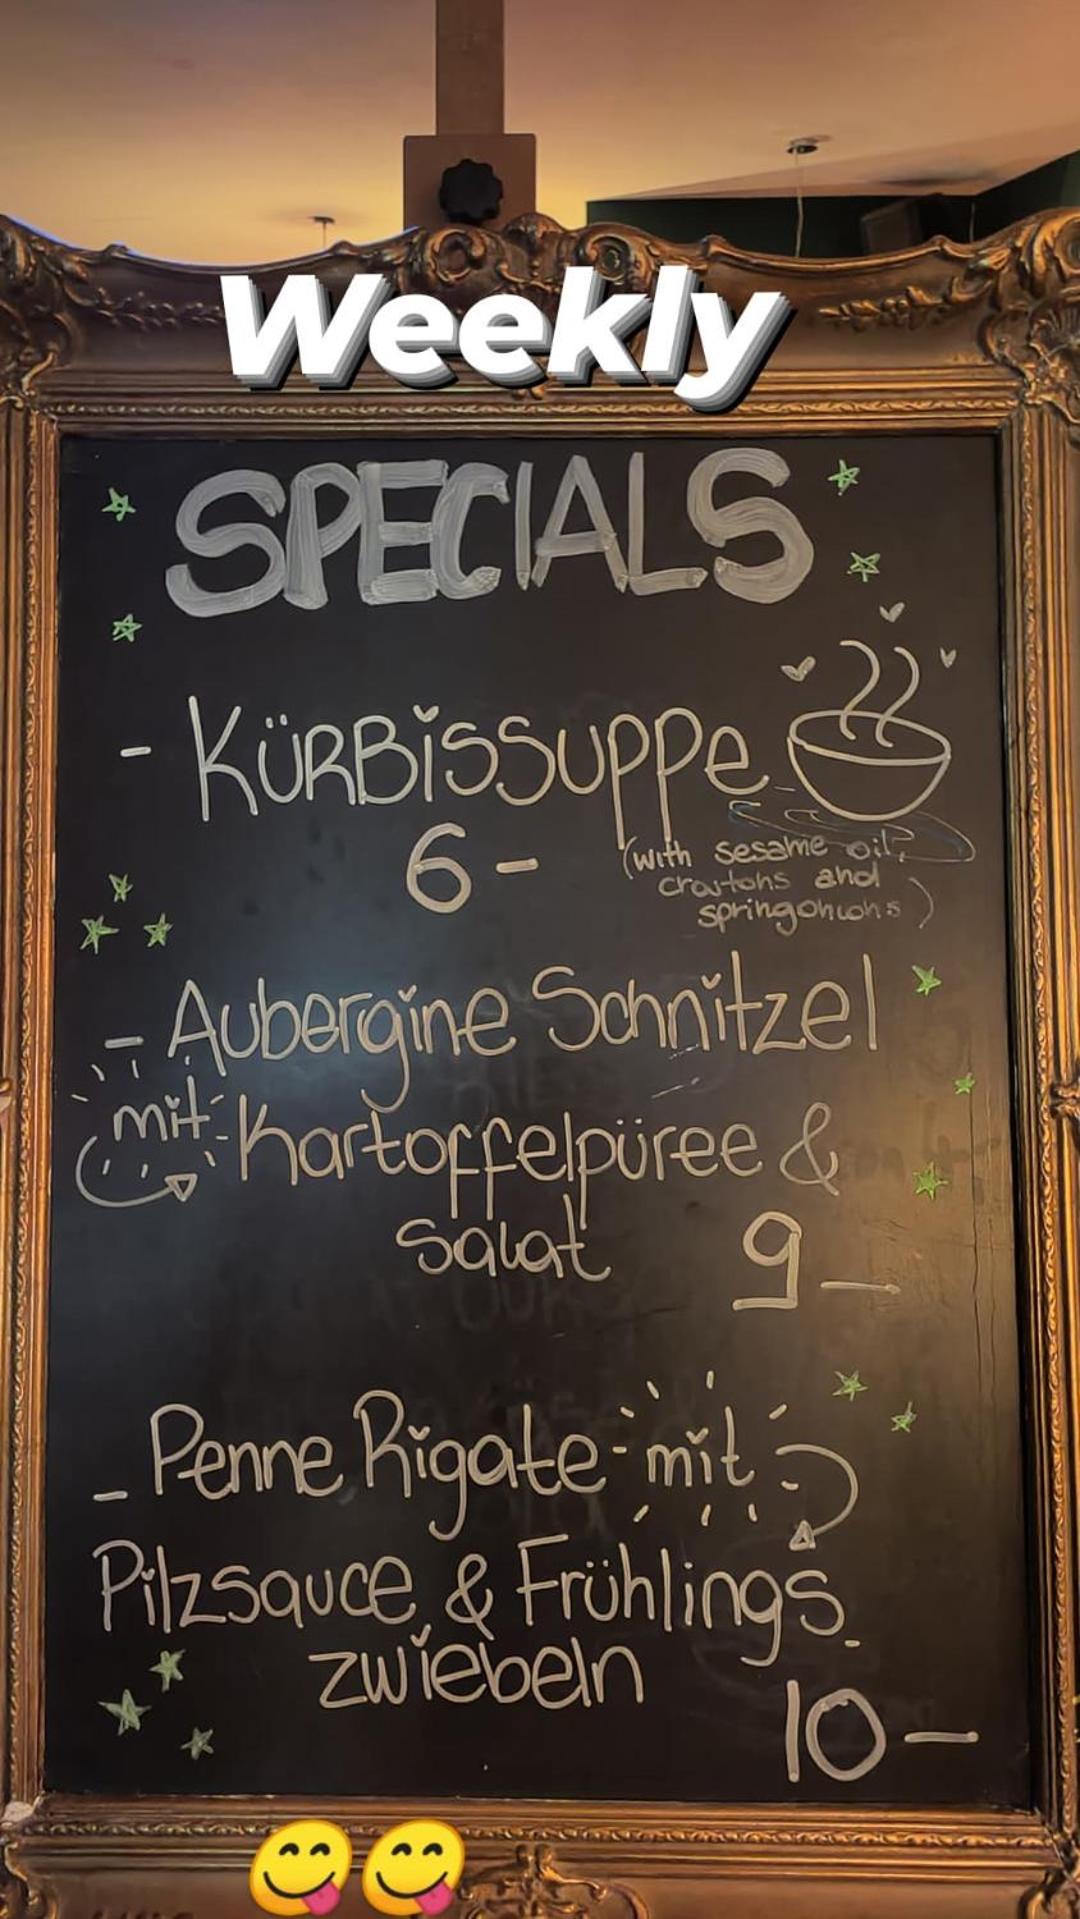 Weekly
SPECIALS
- KÜRBiSSUPPE
6 -
(with sesame oil,
croutons and
springonions)
- Aubergine Schnitzel
mit Kartoffelpüree &
Salat 9 -
- Penne Rigate mit
Pilzsauce & Frühlings-
zwiebeln
10 -